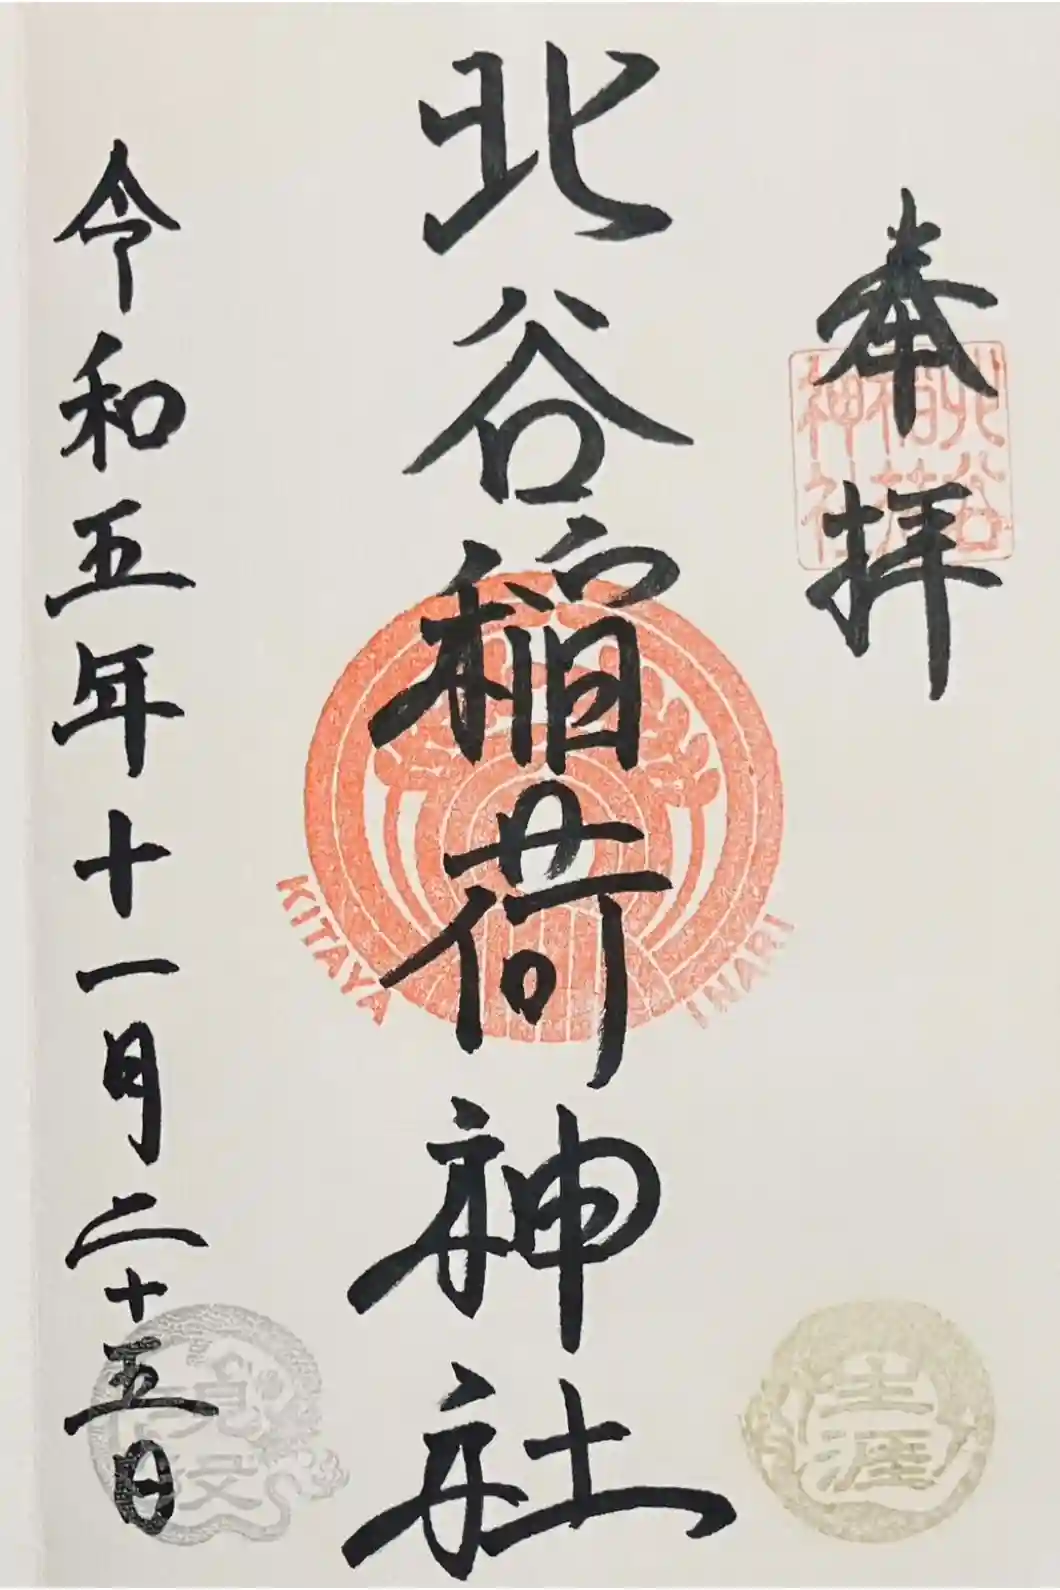 奉拝
北谷
稲荷
神社
北谷稲荷神社
KITAYA
INARI
令和五年十一月二十五日
生涯